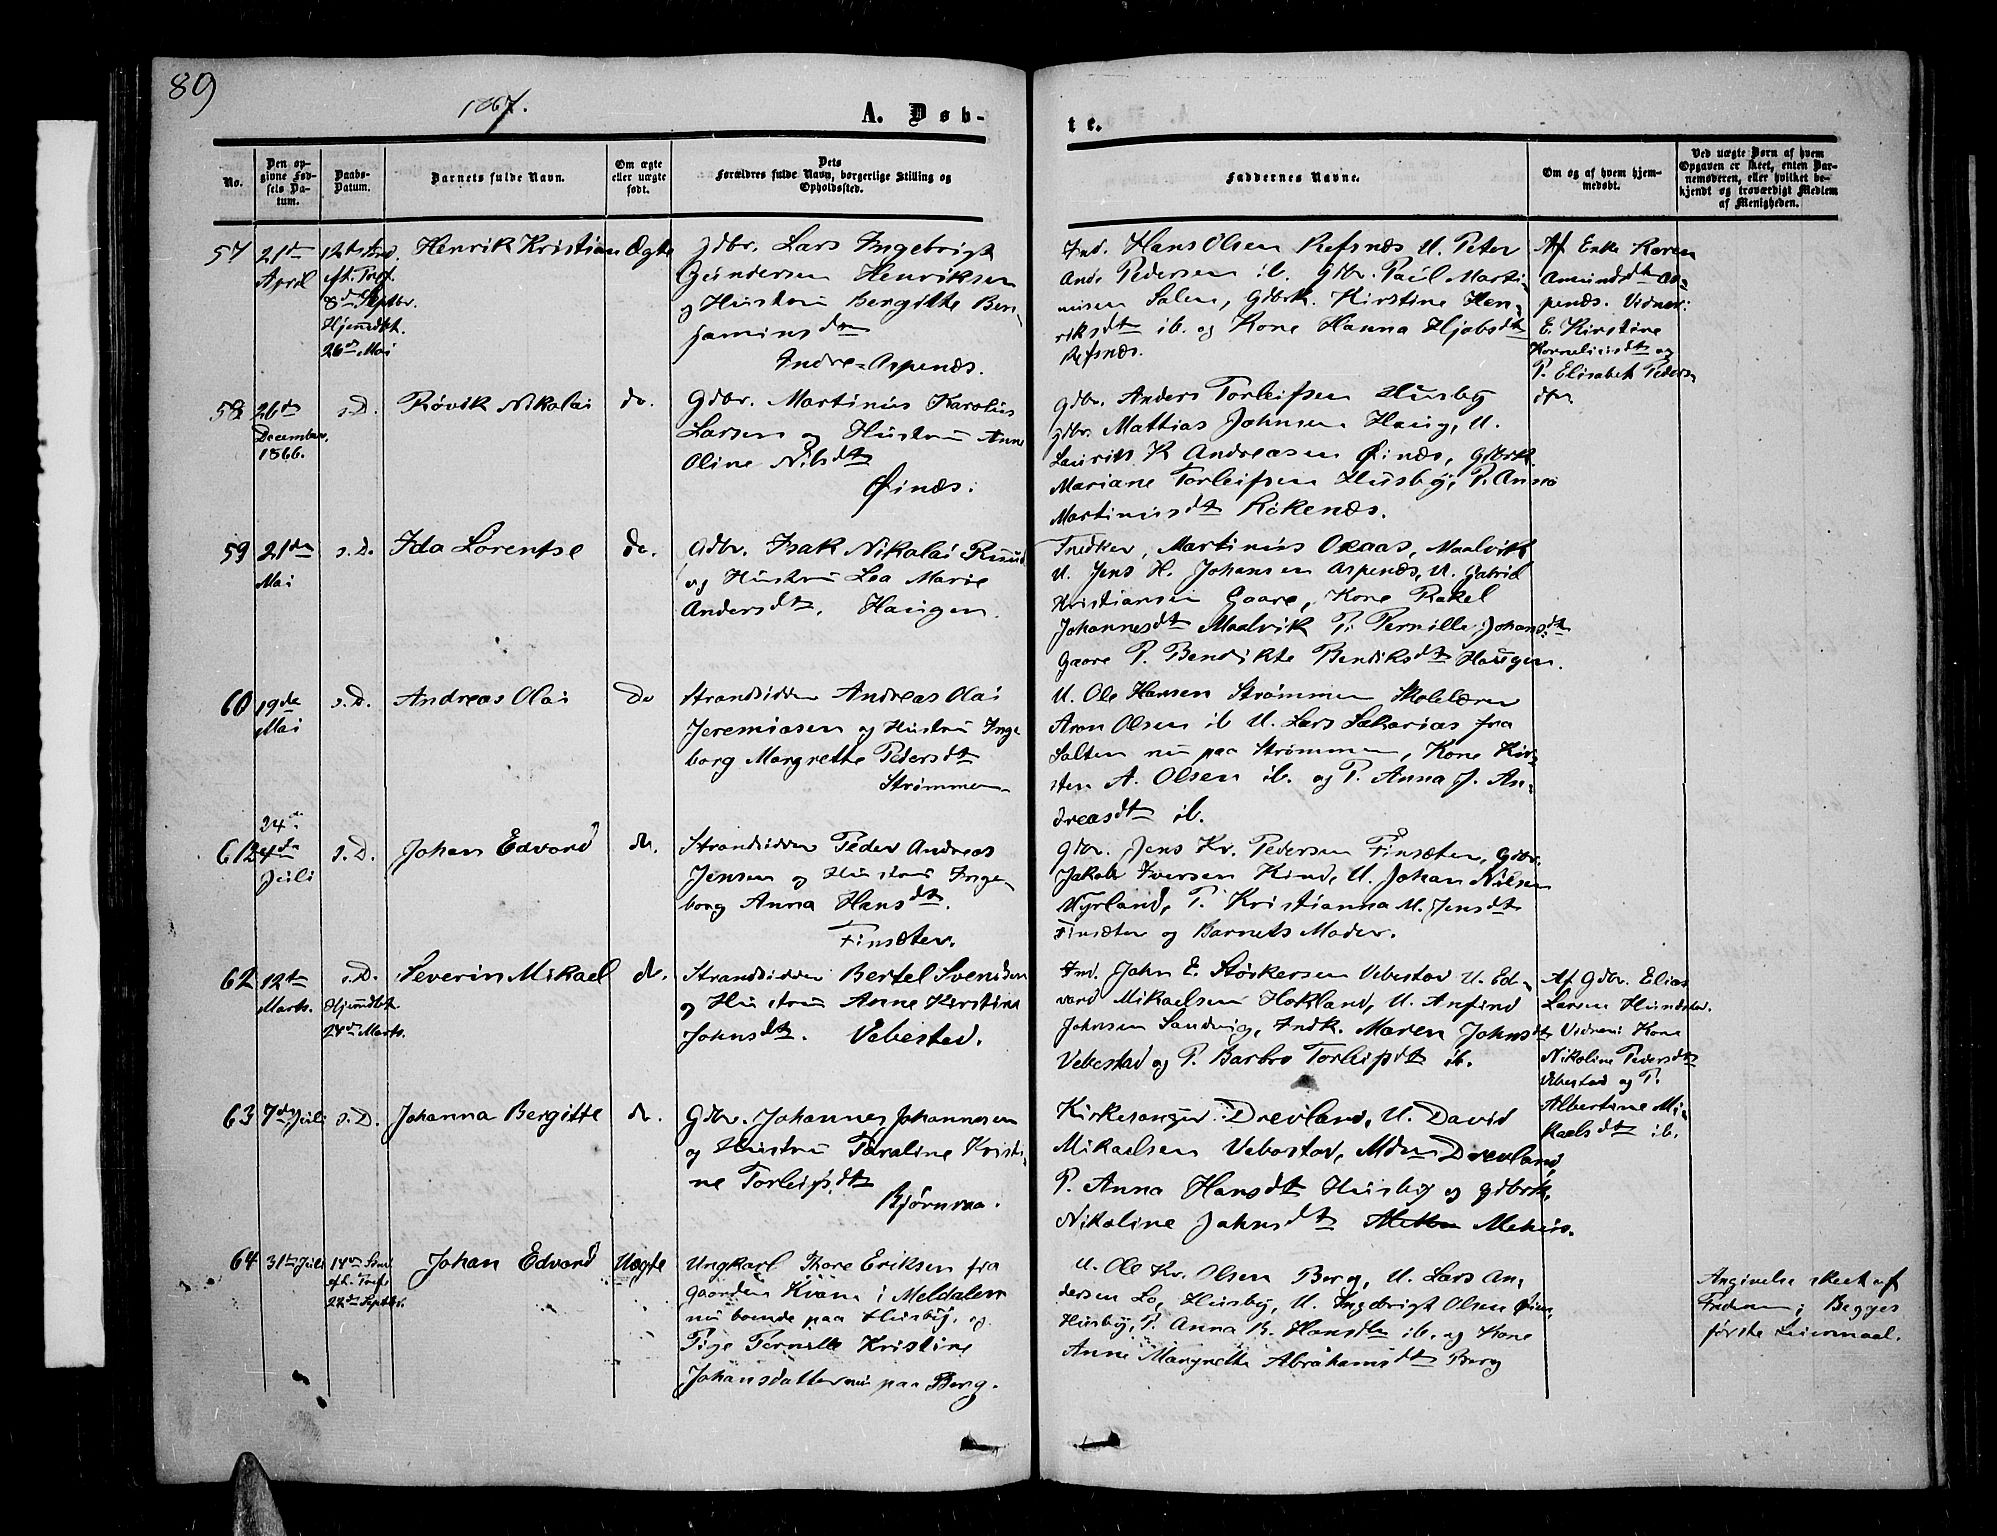 89
1867.
A. Døb-
te.
No.
Den op-
givne Fød-
sels Da-
tum.
Daabs-
Datum.
Barnets fulde Navn.
Om ægte
eller uægte
født.
Dets
Forældres fulde Navn, borgerlige Stilling og
Opholdssted.
Faddernes Navne.
Om og af hvem hjem-
medøbt.
Ved uægte Børn af hvem
Opgaven er skeet, enten Bar-
nemoderen, eller hvilket be-
kjendt og troværdigt Medlem
af Menigheden.
57
21de
April
12te Snd.
eft. Tref.
8de Septbr.
Hjemdbt.
26de Mai
Henrik Kristian
Ægte
Gdbr. Lars Ingebrigt
Gundersen Henriksen
og Hustru Bergitte Ben-
jaminsdtr
Indre-Aspenæs.
Ind. Hans Olsen Refsnæs U. Peter
And. Pedersen ib. Gdbr. Paul Marti-
nusen Salen, Gdbrk. Kirstine Hen-
riksdtr ib. og Kone Hanna Hjabsdtr
Refsnæs.
Af Enke Karen
Amundsdtr As-
penæs. Vidner:
E. Kirstine
Korneliusdtr og
P. Elisabet Peders
dtr.
58
26de
December
1866.
s.D.
Røvik Nikolai
do.
Gdbr. Martinus Karolius
Larsen og Hustru Anne
Oline Nilsdtr
Øinæs.
Gdbr. Anders Torleifsen Husby
Gdbr. Mattias Johnsen Haug, U.
Laurits K Andreasen Øinæs, Gdbrk.
Mariane Torleifsen Husby, P. Anna
Martinusdtr Rokenæs.
59
21de
Mai
s.D.
Ida Lorentse
do.
Gdbr. Isak Nikolai Knud
og Hustru Lea Marie
Andersdtr. Haugen.
Snedker, Martinus Olaas, Maalvik
U. Jens H. Johansen Aspenæs, U. Gabriel
Kristiansen Gaare, Kone Rakel
Johannesdtr Maalvik P. Pernille Johansdtr
Gaare P. Bendikte Bendiksdtr Haugen.
60
19de
Mai
s.D.
Andreas Olai
Do
Strandsidder Andreas Olai
Jeremiasen og Hustru Inge
borg Margrette Pedersdtr
Strømmen
U. Ole Hansen Strømmen Skolelærer
Aron Olsen ib U. Lars Sakarias fra
Salten nu paa Strømmen, Kone Kir-
sten A. Olsen ib. og P. Anna J. An-
dreasdtr ib.
61
24de
4de
Juli
s.D.
Johan Edvard
do.
Strandsidder Peder Andreas
Jensen og Hustru Inge-
borg Anna Hansdtr.
Finsæter.
Gdbr. Jens Kr. Pedersen Finsæter, Gdbr.
Jakob Iversen Kind, U. Johan Nilsen
Myrland, P. Kristianna M. Jensdtr
Finsæter og Barnets Moder.
62
12te
Marts.
s.D.
Hjemdbt.
24de Marts.
Severin Mikael
do.
Strandsidder Bertel Svendsen
og Hustru Anne Kirstina
Johnsdtr. Vebestad.
Ind. John E. Størkersen Vebestad U. Ed-
vard Mikaelsen Hokland, U. Anfind
Johnsen Sandvig, Indk. Maren Johnsdtr
Vebestad og P. Barbro Torleifsdtr ib.
Af Gdbr. Elias
Larsen Hundstad.
Vidner: Kone
Nikoline Pedersdtr
Vebestad og P.
Albertine Mi-
kaelsdtr ib.
63
7de Juli
s.D.
Johanna Bergitte
do.
Gdbr. Johannes Johannesen
og Hustru Taraline Kristi-
ne Torleifsdtr
Bjørnraa.
Kirkesanger Drevland, U. David
Mikaelsen Vebostad, Mdm Drevland,
P. Anna Hansdtr Husby og Gdbrk.
Nikoline Johnsdtr Mehus.
64
31te Juli
14de Snd
eft. Tref.
22de Septbr.
Johan Edvard
Uægte
Ungkarl Thore Eriksen fra
Gaarden Kvam i Meldalen
nu boende paa Husby, og
Pige Pernelle Kristine
Johansdatter nu paa Berg.
U. Ole Kr. Olsen Berg, U. Lars An-
dersen Lo, Husby, U. Ingebrigt Olsen
Husby, P. Anna B. Hansdtr ib. og Kone
Anne Margrette Abrahamsdtr Berg
Angivelse skeet af
Faderen; Begges
første Leiermaal.